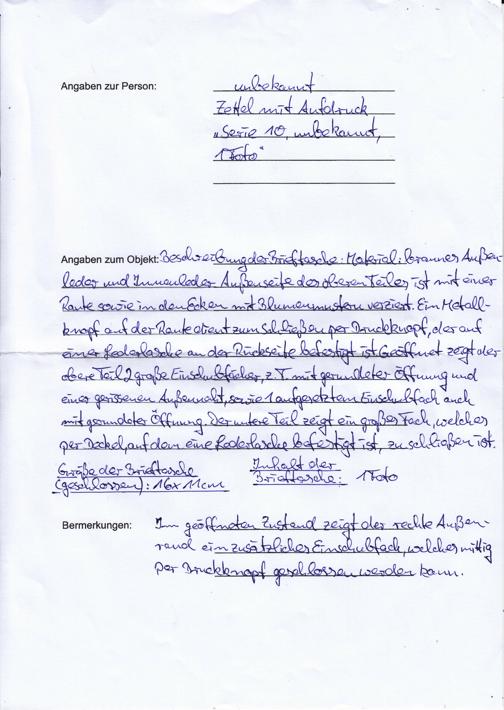 Angaben zur Person: unbekannt
Zettel mit Aufdruck
„Serie 10, unbekannt,
1 Foto"
Angaben zum Objekt: Beschreibung der Brieftasche: Material: braunes Außen-
leder und Innenleder. Außenseite des oberen Teiles ist mit einer
Raute sowie in den Ecken mit Blumenmustern verziert. Ein Metall-
knopf auf der Raute dient zum Schließen per Druckknopf, der auf
einer Lederlasche an der Rückseite befestigt ist. Geöffnet zeigt der
obere Teil 2 große Einschubfächer, z. T. mit gerundeter Öffnung und
einer gerissenen Außennaht, sowie 1 aufgesetztem Einschubfach auch
mit gerundeter Öffnung. Der untere Teil zeigt ein großes Fach, welches
per Deckel, auf dem eine Lederlasche befestigt ist, zu schließen ist.
Größe der Brieftasche
(geschlossen): 16x11cm
Inhalt der
Brieftasche: 1 Foto
Bermerkungen: Im geöffneten Zustand zeigt der rechte Außen-
rand ein zusätzliches Einschubfach, welches mittig
per Druckknopf geschlossen werden kann.